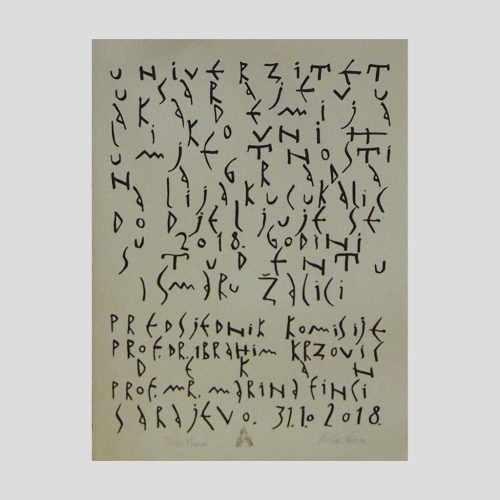 UNIVERZITET
U SARAJEVU
AKADEMIJA
LIKOVNIH
UMJETNOSTI
GRADA
NALIJAKUCUKALIC
DODJELJUJE SE
U 2018. GODINI
STUDENTU
ISMARU ŽALICI
PREDSJEDNIK KOMISIJE
PROF. DR. IBRAHIM KRZOVIS
DEKAN
PROF. MR. MARINA FINCI
SARAJEVO. 31.10 2018.
A